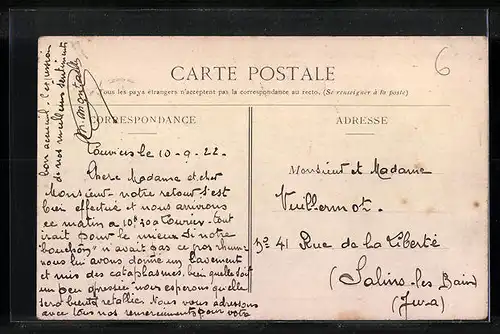 CARTE POSTALE
Tous les pays étrangers n'acceptent pas la correspondance au recto. (Se renseigner à la poste)
CORRESPONDANCE
ADRESSE
6
Louviers le 10-9-22.
Chère Madame et cher
Monsieur notre retour s'est
bien effectué et nous arrivons
ce matin à 10h30 a Louviers. tout
irait pour le mieux si notre
"bouchon" n'avait pas ce gros rhume
nous lui avons donné un lavement
et mis des cataplasmes, bien qu'elle soit
un peu opressée nous esperons qu'elle
sera bientôt retablie. Nous vous adressons
avec tous nos remerciements pour votre
bon accueil l'expression
de nos meilleurs sentiments
Monsieur et Madame
Vuillermoz.
No 41 Rue de la Liberté
(Salins-les Bains)
(Jura)